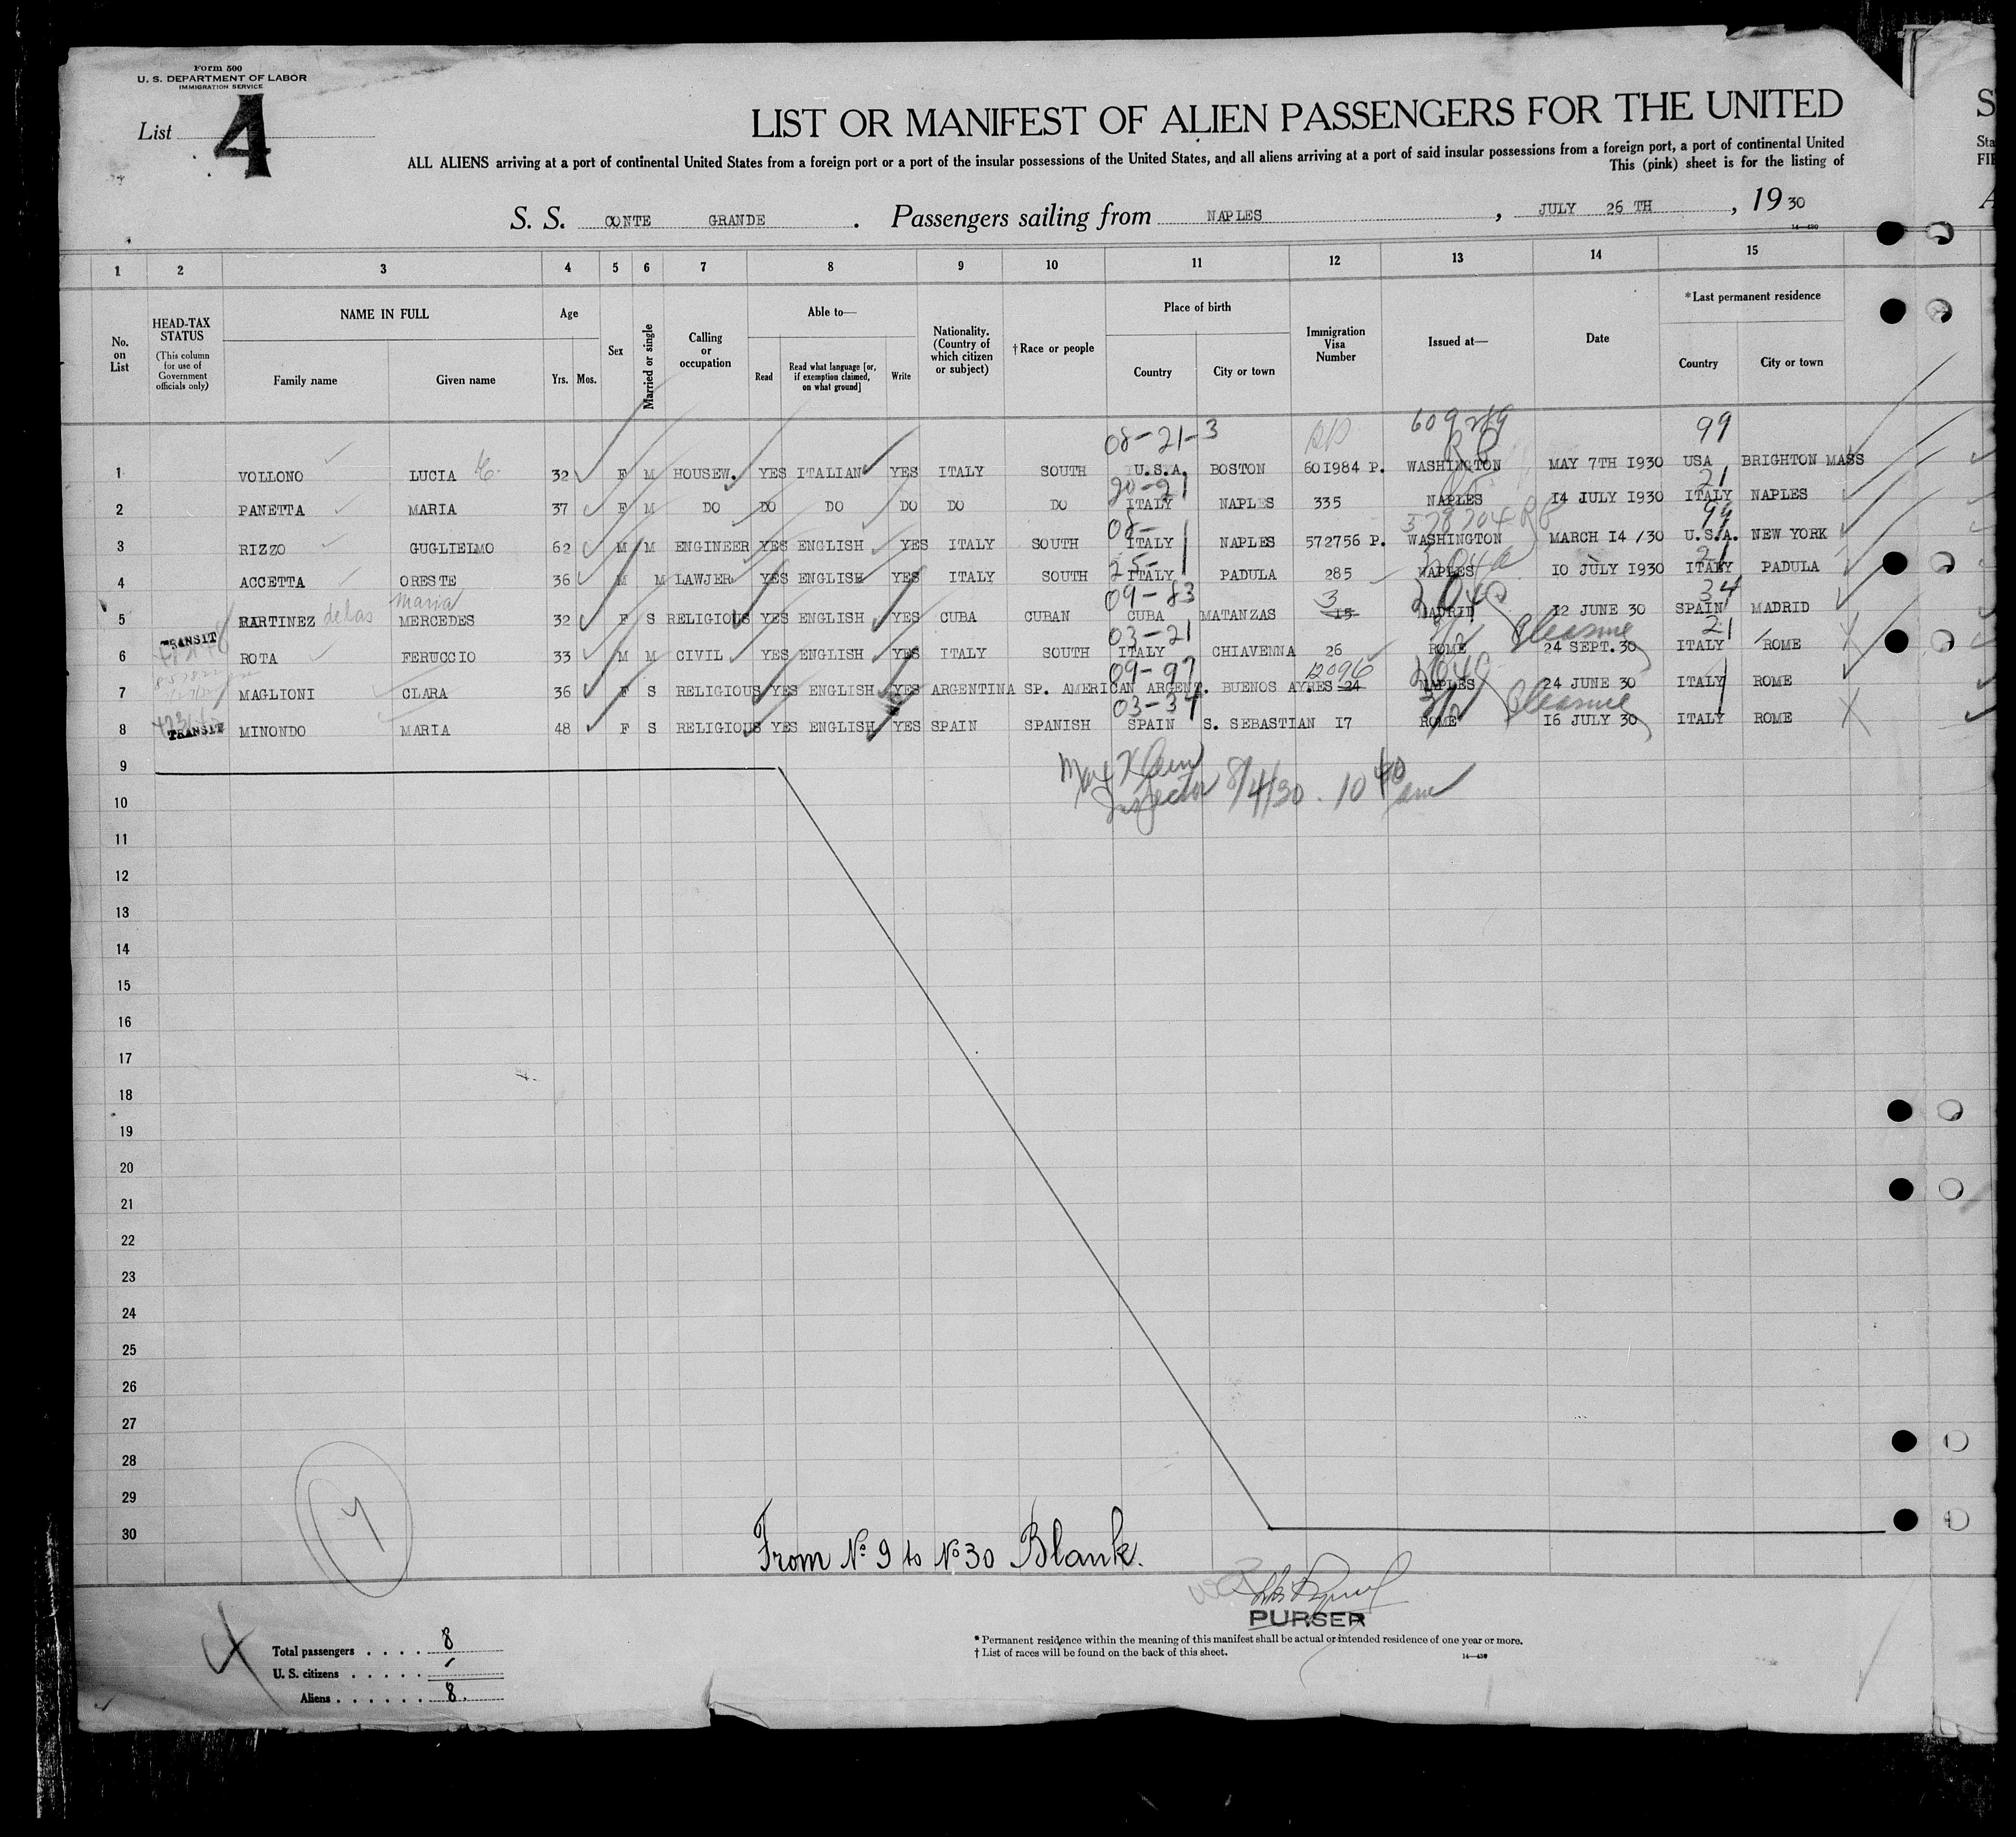 Form 500
U. S. DEPARTMENT OF LABOR
IMMIGRATION SERVICE
List 4
LIST OR MANIFEST OF ALIEN PASSENGERS FOR THE UNITED
ALL ALIENS arriving at a port of continental United States from a foreign port or a port of the insular possessions of the United States, and all aliens arriving at a port of said insular possessions from a foreign port, a port of continental United
This (pink) sheet is for the listing of
S. S. CONTE GRANDE . Passengers sailing from NAPLES , JULY 26 TH , 19 30
14—430
1 2 3 4 5 6 7 8 9 10 11 12 13 14 15
No. on List
HEAD-TAX STATUS (This column for use of Government officials only)
NAME IN FULL
Family name Given name
Age
Yrs. Mos.
Sex
Married or single
Calling or occupation
Able to—
Read
Read what language [or, if exemption claimed, on what ground]
Write
Nationality. (Country of which citizen or subject)
†Race or people
Place of birth
Country City or town
Immigration Visa Number
Issued at—
Date
*Last permanent residence
Country City or town
08-21-3 609289 99
1 VOLLONO LUCIA 32 F M HOUSEW. YES ITALIAN YES ITALY SOUTH U.S.A. BOSTON 601984 P. WASHINGTON MAY 7TH 1930 USA BRIGHTON MASS
20-21 21
2 PANETTA MARIA 37 F M DO DO DO DO DO DO ITALY NAPLES 335 NAPLES 14 JULY 1930 ITALY NAPLES
08- 378704 RP 99
3 RIZZO GUGLIELMO 62 M M ENGINEER YES ENGLISH YES ITALY SOUTH ITALY NAPLES 572756 P. WASHINGTON MARCH 14 /30 U.S.A. NEW YORK
25- 21
4 ACCETTA ORESTE 36 M M LAWJER YES ENGLISH YES ITALY SOUTH ITALY PADULA 285 NAPLES 10 JULY 1930 ITALY PADULA
Maria 09-83 3 34
5 MARTINEZ de las MERCEDES 32 F S RELIGIOUS YES ENGLISH YES CUBA CUBAN CUBA MATANZAS 15 MADRID 12 JUNE 30 SPAIN MADRID
TRANSIT 03-21 3/2 Pleasure 21
6 ROTA FERUCCIO 33 M M CIVIL YES ENGLISH YES ITALY SOUTH ITALY CHIAVENNA 26 ROME 24 SEPT.30 ITALY ROME
09-97
7 MAGLIONI CLARA 36 F S RELIGIOUS YES ENGLISH YES ARGENTINA SP. AMERICAN ARGENT. BUENOS AYRES 24 NAPLES 24 JUNE 30 ITALY ROME
03-34 3/2 Pleasure
8 TRANSIT MINONDO MARIA 48 F S RELIGIOUS YES ENGLISH YES SPAIN SPANISH SPAIN S. SEBASTIAN 17 ROME 16 JULY 30 ITALY ROME
9
Max Klein
Inspector 8/4/30. 10 40 am
10
11
12
13
14
15
16
17
18
19
20
21
22
23
24
25
26
27
28
29
30
From No 9 to No 30 Blank.
PURSER
Total passengers . . . . 8
U. S. citizens . . . . . -
Aliens . . . . . . 8.
* Permanent residence within the meaning of this manifest shall be actual or intended residence of one year or more.
† List of races will be found on the back of this sheet.
14—430